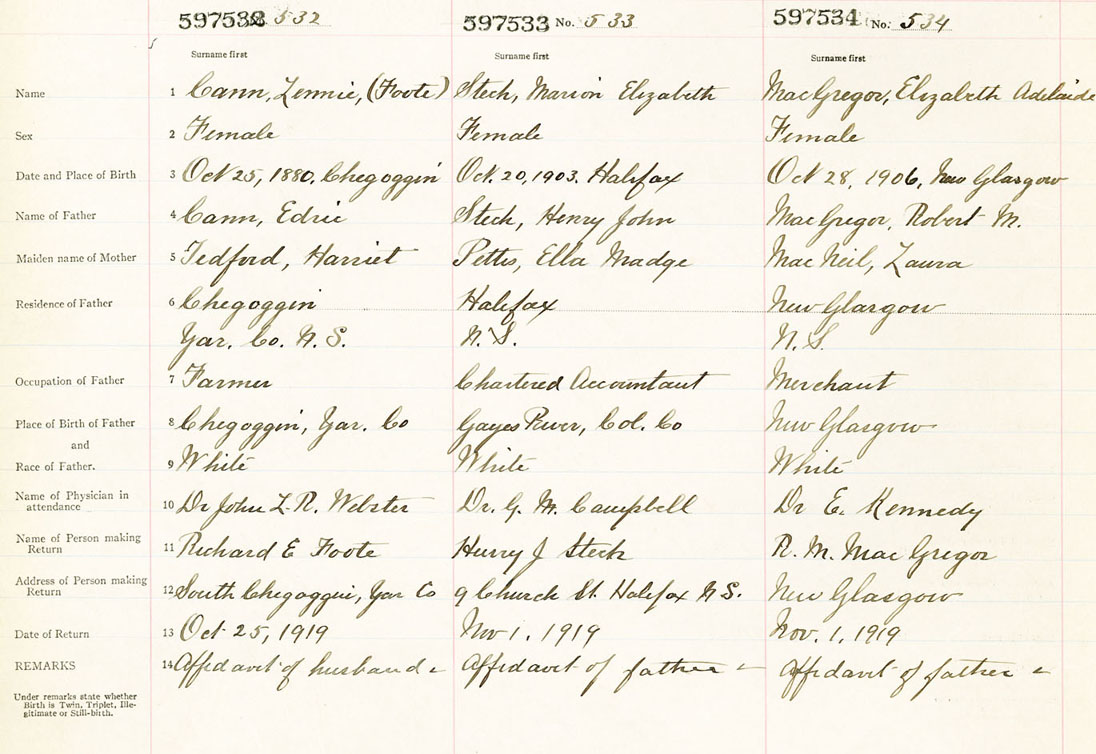 597532 532 597533 No. 533 597534 No. 534
Surname first Surname first Surname first
Name 1 Cann, Lennie, (Foote) Stech, Marion Elizabeth MacGregor, Elizabeth Adelaide
Sex 2 Female Female Female
Date and Place of Birth 3 Oct 25, 1880, Chegoggin Oct. 20, 1903. Halifax Oct 28, 1906, New Glasgow
Name of Father 4 Cann, Edric Stech, Henry John MacGregor, Robert M.
Maiden name of Mother 5 Tedford, Harriet Pettis, Ella Madge MacNeil, Laura
Residence of Father 6 Chegoggin Halifax New Glasgow
Yar. Co. N. S. N. S. N. S.
Occupation of Father 7 Farmer Chartered Accountant Merchant
Place of Birth of Father 8 Chegoggin, Yar. Co Gayes River, Col. Co New Glasgow
and
Race of Father. 9 White White White
Name of Physician in
attendance 10 Dr John L. R. Webster Dr. G. M. Campbell Dr E. Kennedy
Name of Person making
Return 11 Richard E Foote Harry J Stech R. M. MacGregor
Address of Person making
Return 12 South Chegoggin, Yar Co 9 Church St. Halifax N S. New Glasgow
Date of Return 13 Oct 25, 1919 Nov 1. 1919 Nov. 1, 1919
REMARKS 14 Affidavit of husband Affidavit of father Affidavit of father
Under remarks state whether
Birth is Twin, Triplet, Ille-
gitimate or Still-birth.